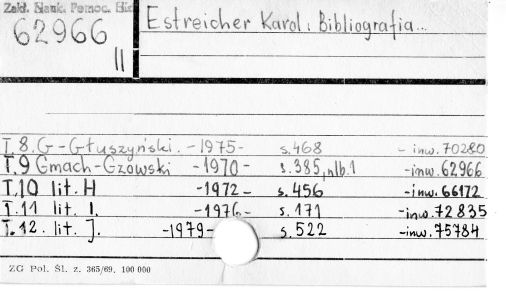 Zakł. Nauk. Pomoc. Bibl
62966
II
Estreicher Karol: Bibliografia...
T.8. G-Głuszyński. -1975- s.468 -inw.70280
T.9 Gmach-Gzowski -1970- s.385, nlb.1 -inw.62966
T.10 lit. H -1972- s.456 -inw.66172
T.11 lit. I. -1976- s.171 -inw.72835
T.12. lit. J. -1979- s.522 -inw.75784
ZG Pol. Śl. z. 365/69. 100 000